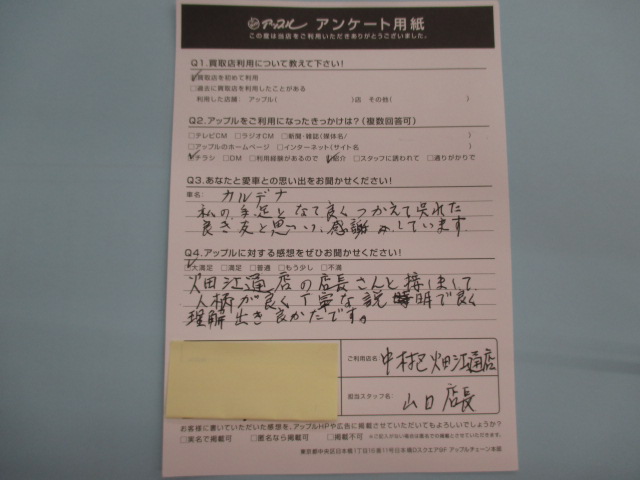 アップル アンケート用紙
この度は当店をご利用いただきありがとうございました。
Q1.買取店利用について教えて下さい!
☑買取店を初めて利用
□過去に買取店を利用したことがある
利用した店舗: アップル( )店 その他( )
Q2.アップルをご利用になったきっかけは?(複数回答可)
□テレビCM □ラジオCM □新聞・雑誌(媒体名/ )
□アップルのホームページ □インターネット(サイト名 )
☑チラシ □DM □利用経験があるので ☑紹介 □スタッフに誘われて □通りがかりで
Q3.あなたと愛車との思い出をお聞かせください!
車名: カルデナ
私の手足となて良くつかえて呉れた
良き友と思いつつ、感謝しています
Q4.アップルに対する感想をぜひお聞かせください!
☑大満足 □満足 □普通 □もう少し □不満
畑江通店の店長さんと接しまして
人柄が良く丁寧な説明で良く
理解出き良かたです。
ご利用店名 中村区畑江通店
担当スタッフ名: 山口店長
お客様に書いていただいた感想を、アップルHPや広告に掲載させていただいてもよろしいでしょうか?
□実名で掲載可 □匿名なら掲載可 □掲載不可 ※ご記入がない場合は匿名での掲載とさせていただきます。
東京都中央区日本橋1丁目16番11号日本橋DスクエアBF アップルチェーン本部